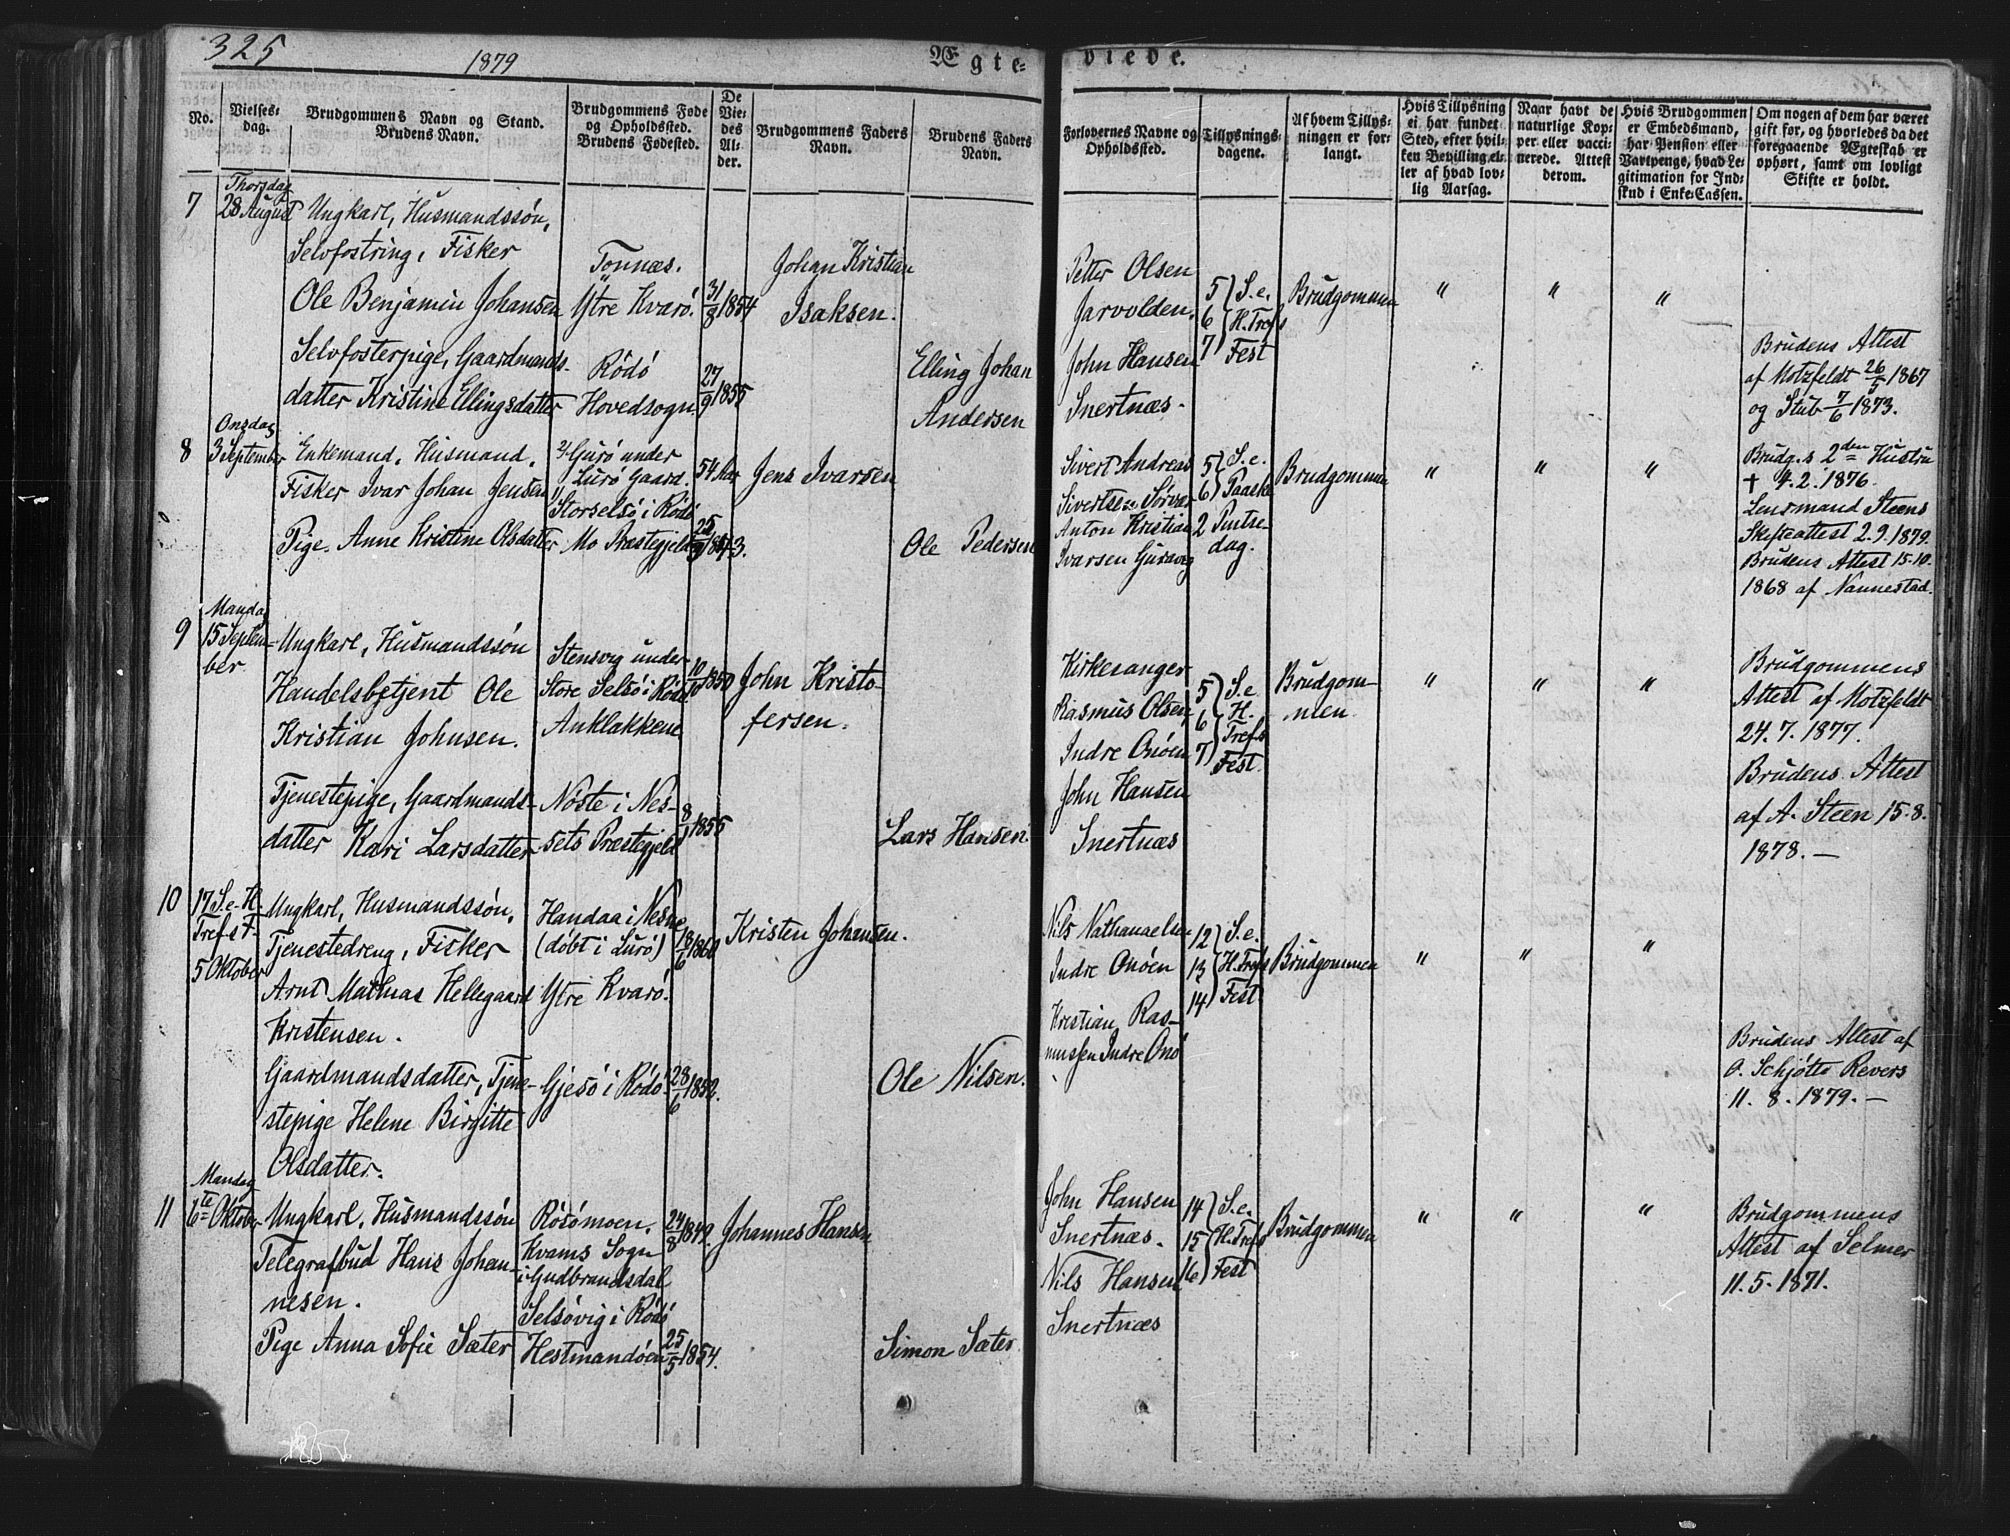 325
1879
Ægte- viede.
No.
Vielses-
dag.
Brudgommens Navn og Stand.
Brudens Navn.
Brudgommens Føde
og Opholdssted.
Brudens Fødested.
De
Vie-
des
Al-
der.
Brudgommens Faders
Navn.
Brudens Faders
Navn.
Forlovernes Navne og
Opholdssted.
Tillysnings-
dagene.
Af hvem Tillys-
ningen er for-
langt.
Hvis Tillysning
ei har fundet
Sted, efter hvil-
ken Bevilling el-
ler af hvad lov-
lig Aarsag.
Naar havt de
naturlige Kop-
per eller vacci-
nerede. Attest
derom.
Hvis Brudgommen
er Embedsmand,
har Pension eller
Vartpenge, hvad Le-
gitimation for Ind-
skud i Enke-Cassen.
Om nogen af dem har været
gift før, og hvorledes da det
foregaaende Ægteskab er
ophørt, samt om lovligt
Skifte er holdt.
7
Thorsdag
28 August
Ungkarl, Husmandssøn,
Selvfostring, Fisker
Ole Benjamin Johansen
Tonnæs.
Ytre Kvarø.
31/8 1854
Johan Kristian
Isaksen.
Petter Olsen
Jarvolden.
5 } S.e.
6 } H. Trefs
7 } Fest
Brudgommen
" " "
Selvfosterpige, Gaardmands-
datter Kristine Ellingsdatter
Rödö
Hovedsogn
27/9 1855
Elling Johan
Andersen
John Hansen
Snertnæs.
Brudens Attest
af Motzfeldt 26/5 1867
og Stub 7/6 1873.
8
Onsdag
3 September
Enkemand, Husmand,
Fisker Ivar Johan Jensen
Gurø under
Lurö Gaard.
Storselsö i Rödö
54 Aar
Jens Ivarsen
Sivert Andreas
Sivertsen Sörvær
5 } S.e.
6 } Paaske
2 Pintse-
dag.
Brudgommen
" " "
Brudg.s 2den Hustru
† 4.2.1876.
Lensmand Steens
Skifteattest 2.9.1879.
Pige Anne Kristine Olsdatter
Mo Præstegjeld
Ole Pedersen
Anton Kristian
Ivarsen Guravig
Brudens Attest 15.10.
1868 af Nannestad.
9
Mandag
15 Septem-
ber
Ungkarl, Husmandssön
Handelsbetjent Ole
Kristian Johnsen.
Stensvig under
Store Selsö i Rödö
Anklakkene
John Kristo-
fersen.
Kirkesanger
Rasmus Olsen
Indre Onöen
5 } S.e
6 } H.
7 } Trefs
Fest.
Brudgom-
men.
" " "
Brudgommens
Attest af Motzfeldt
24.7.1877.
Tjenestepige, Gaardmands-
datter Kari Larsdatter
Nöste i Nes-
sets Præstegjeld
8/1 1855
Lars Hansen.
John Hansen
Snertnæs
Brudens Attest
af A. Steen 15.8.
1878. —
10
17 S.e. H.
Trefs F.
5 Oktober
Ungkarl, Husmandssön,
Tjenestedreng, Fisker
Arnt Mathias Hellegaard
Kristensen.
Handaa i Nesne
(döbt i Lurö)
Ytre Kvarö.
18/6 1860
Kristen Johansen.
Nils Nathanaelsen
Indre Onöen
12 } S.e.
13 } H. Trefs
14 } Fest
Brudgommen
" " "
Kristian Ras-
mussen Indre Onö
Gaardmandsdatter, Tjene-
stepige Helene Birgitte
Olsdatter.
Gjesö i Rödö
28/6
Ole Nilsen.
Brudens Attest af
O. Schjötts Revers
11.8.1879. —
11
Mandag
6te Oktober
Ungkarl, Husmandssön
Telegrafbud Hans Johan-
nesen.
Rösömoen,
Kvams Sogn
i Gudbrandsdal
Selsövig i Rödö
24/8 1849.
Johannes Hansen
John Hansen
Snertnæs.
Nils Hansen
Snertnæs
14 } S.e.
15 } H. Trefs
16 } Fest
Brudgommen
" " "
Brudgommens
Attest af Selmer
11.5.1871.
Pige Anna Sofie Sæter
Hestmandöen
25/5 1854.
Simon Sæter